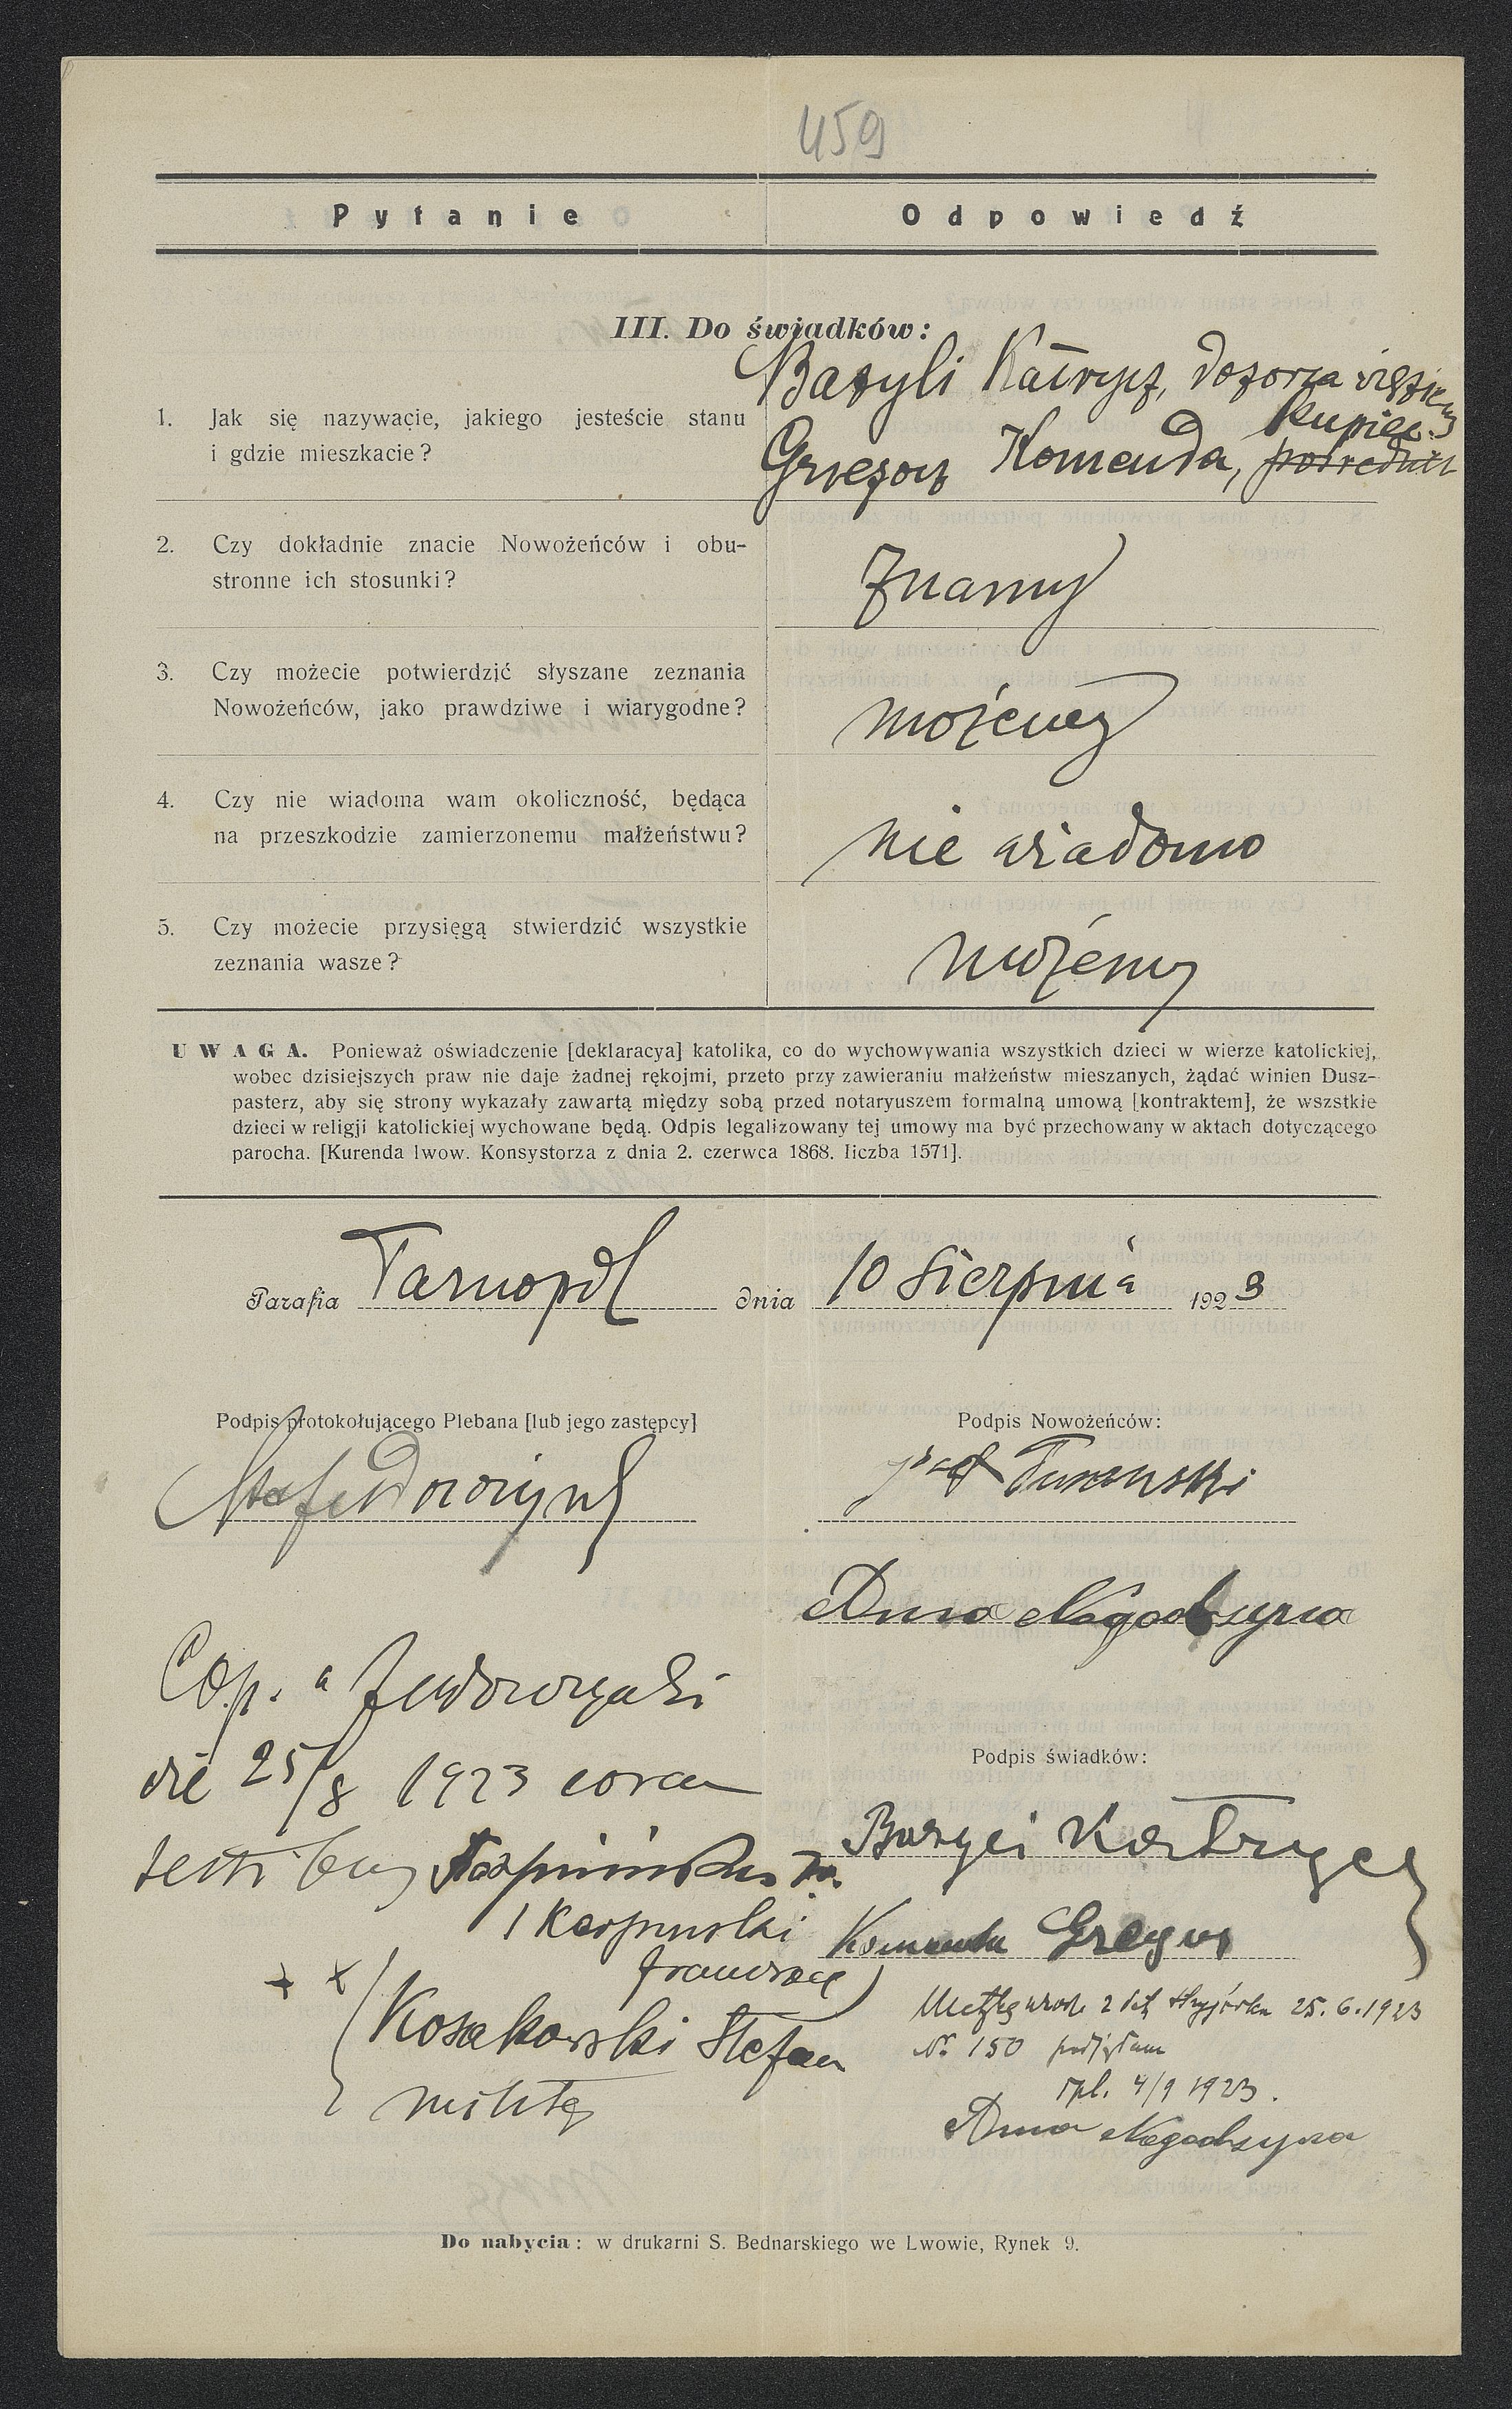 459
Pytanie Odpowiedź
III. Do świadków:
1. Jak się nazywacie, jakiego jesteście stanu
i gdzie mieszkacie?
Bazyli Kałrycz, dozorca więzien.
kupiec
Grzegorz Komenda, pośrednik
2. Czy dokładnie znacie Nowożeńców i obu-
stronne ich stosunki?
znamy
3. Czy możecie potwierdzić słyszane zeznania
Nowożeńców, jako prawdziwe i wiarygodne?
możemy
4. Czy nie wiadoma wam okoliczność, będąca
na przeszkodzie zamierzonemu małżeństwu?
nie wiadomo
5. Czy możecie przysięgą stwierdzić wszystkie
zeznania wasze?
możemy
UWAGA. Ponieważ oświadczenie [deklaracya] katolika, co do wychowywania wszystkich dzieci w wierze katolickiej,
wobec dzisiejszych praw nie daje żadnej rękojmi, przeto przy zawieraniu małżeństw mieszanych, żądać winien Dusz-
pasterz, aby się strony wykazały zawartą między sobą przed notaryuszem formalną umową [kontraktem], że wszstkie
dzieci w religji katolickiej wychowane będą. Odpis legalizowany tej umowy ma być przechowany w aktach dotyczącego
parocha. [Kurenda lwow. Konsystorza z dnia 2. czerwca 1868. liczba 1571].
Parafia Tarnopol dnia 10 Sierpnia 1923
Podpis protokołującego Plebana [lub jego zastępcy]
Podpis Nowożeńców:
Anna Nagadzyna
Cop. a
die 25/8 1923 coram
testibus
Podpis świadków:
Karpiński
Komenda Grzegorz
Franciszek
Kosakowski Stefan
25.6.1923
№ 150 podjęłam
Tpl. 4/9 1923.
Anna Nagadzyna
Do nabycia: w drukarni S. Bednarskiego we Lwowie, Rynek 9.